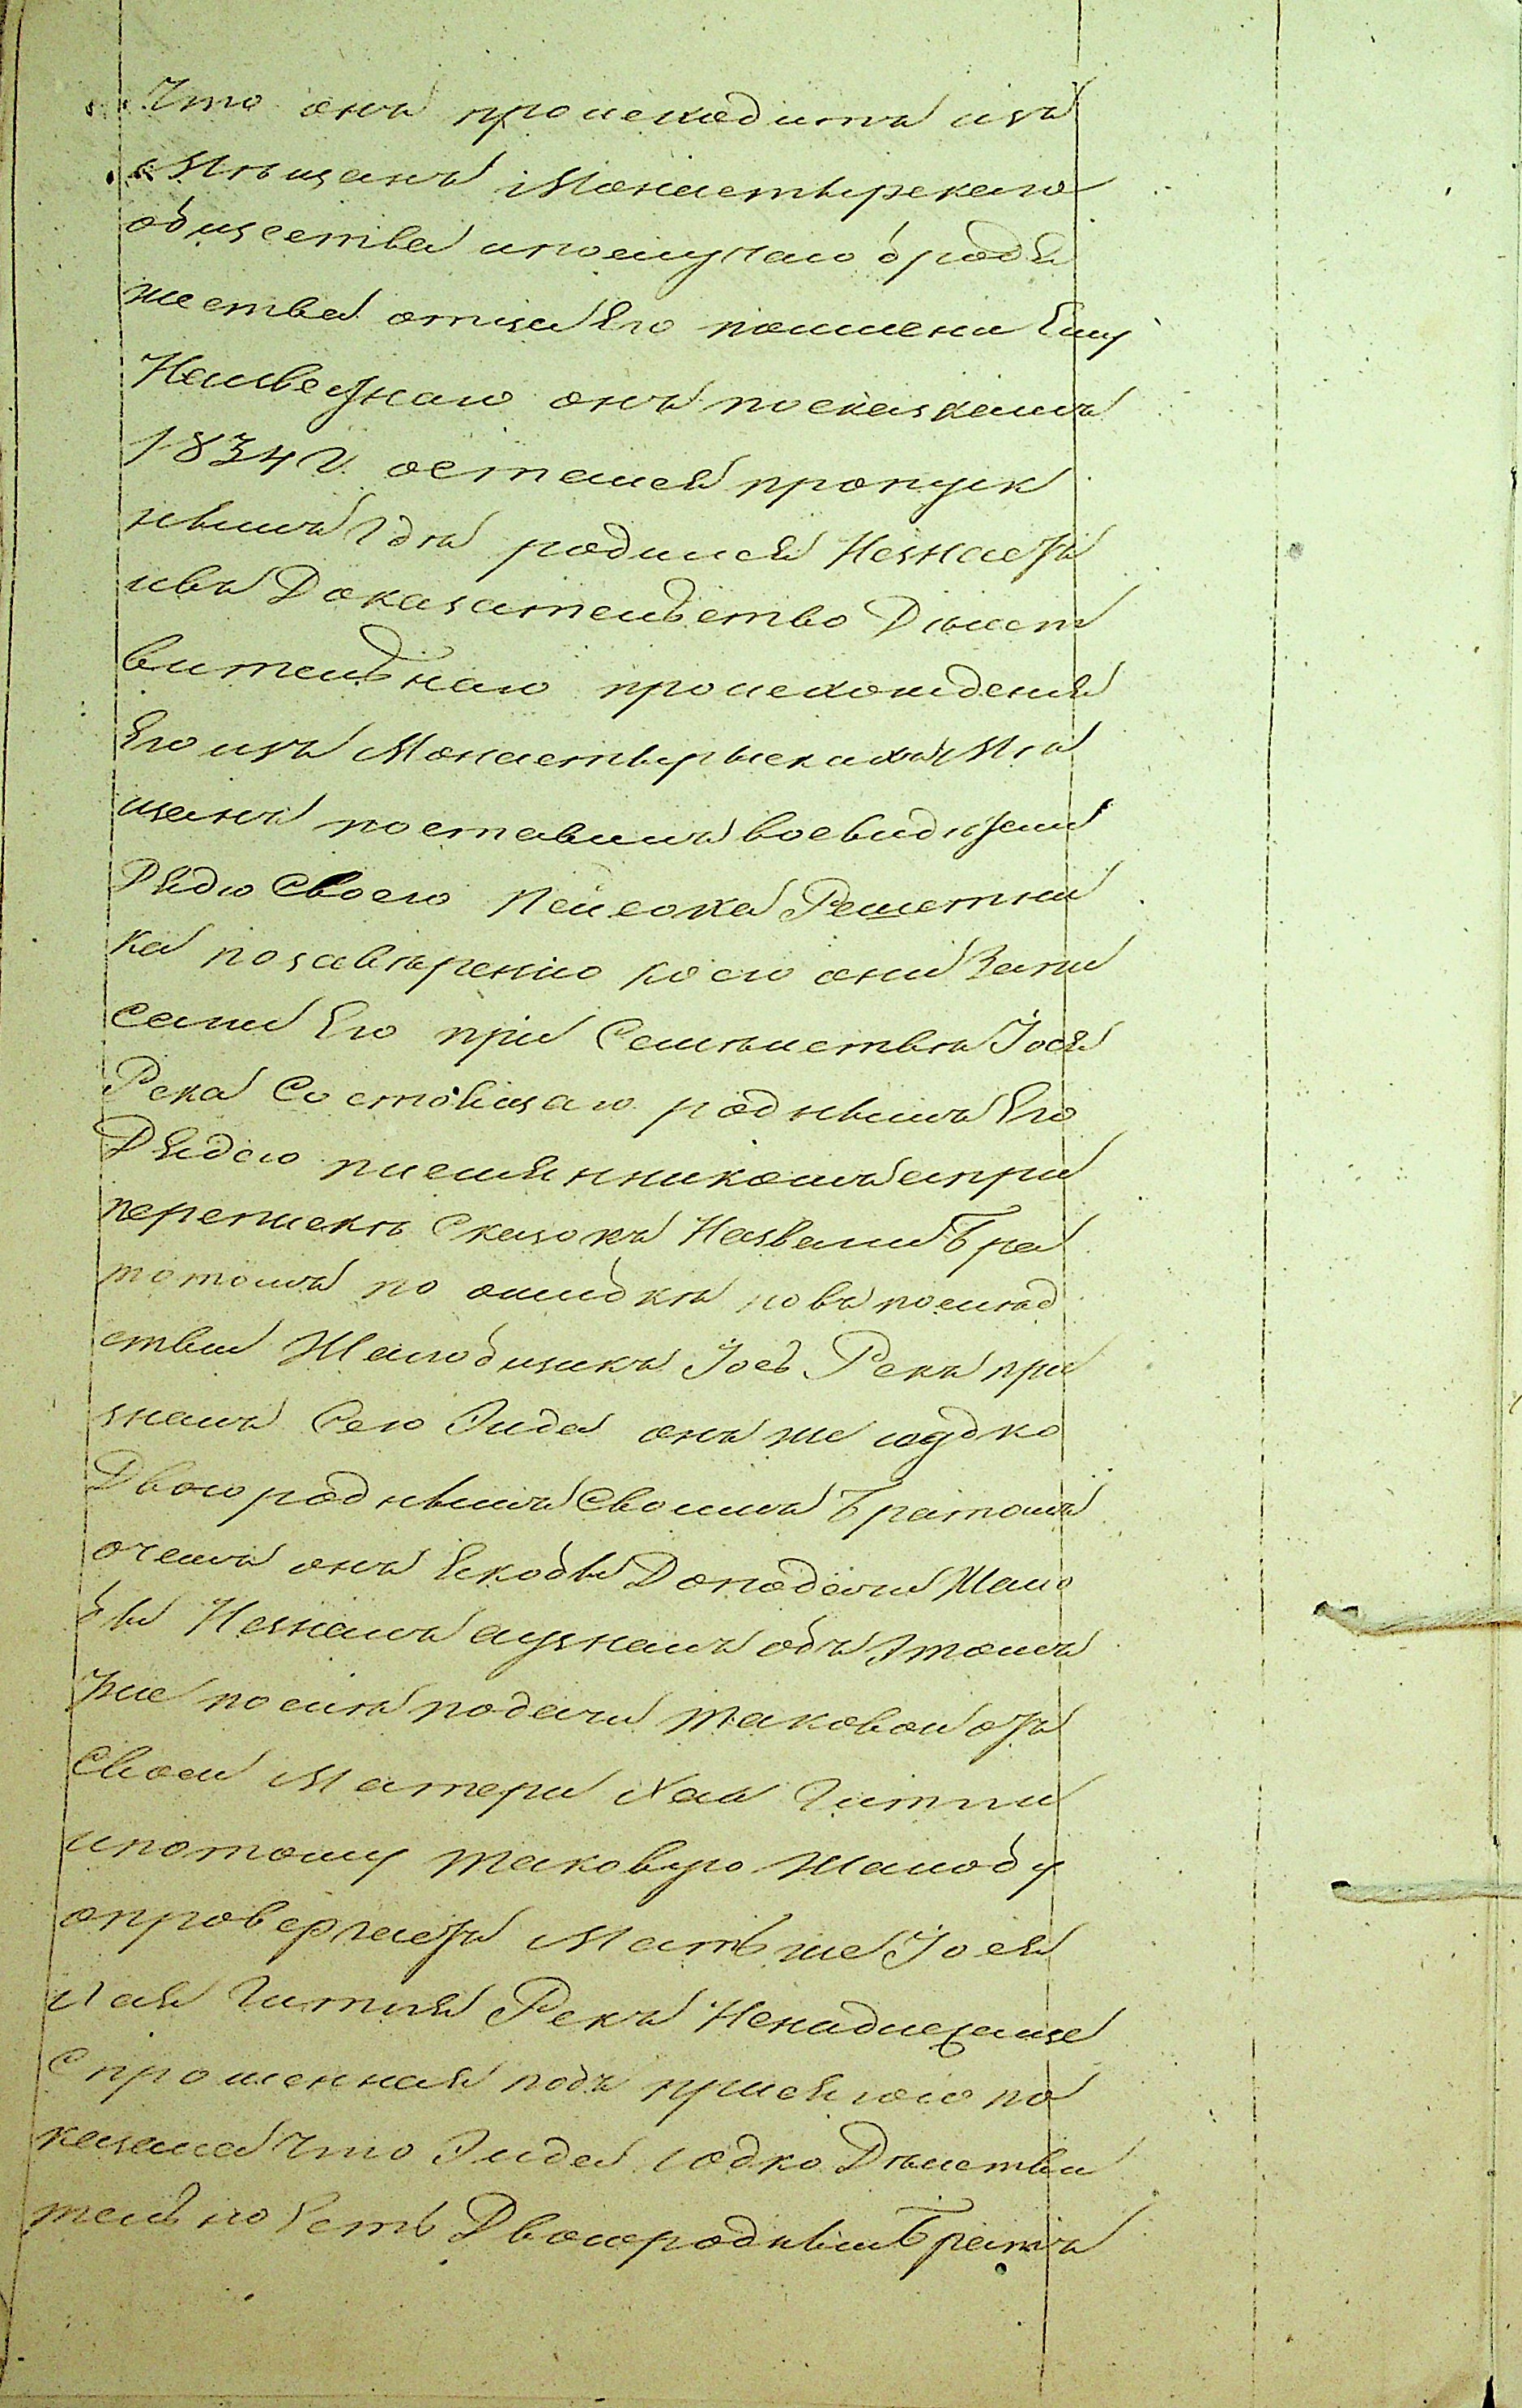 Что онъ происходитъ изъ
Мѣщанъ Монастырскаго
общества ипослучаю бродя
жества отца Его поимени Ему
Неизвестнаго онъ посказкамъ
1834 г. остался пропуск
нымъ гдѣ родился Незнаетъ
ивъ Доказательство Дѣйст
вительнаго происхожденія
Его изъ Монастырыскихъ Мѣ
щанъ поставилъ восвидѣтели
Дядю Своего Пейсока Решетни
ка позавѣренію коего они Запи
сали Его при Семѣйствѣ Іося
Река Состоящаго роднымъ Его
Дядою племянникомъ апри
перепискѣ Сказокъ Назвали Бра
томъ по ошибкѣ повъ послѣд
ствіи Жалобщикъ Іось Рекъ при
зналъ Сего Зида онъ же юдко
Двоюроднымъ Своимъ Братомъ
очемъ онъ Якобы Доподачи Жало
бы Незналъ аузналъ объ Этомъ
уже послѣ подачи таковой отъ
Своей Матери Хаи Гитли
ипотому таковую Жалобу
опровергаетъ Мать же Іося
Хая Гитля Рекъ Ненадлежаще
Спрошенная подъ присягою по
казала Что Зида юдко Дѣйстви
тельно Есть Двоюродный Братъ